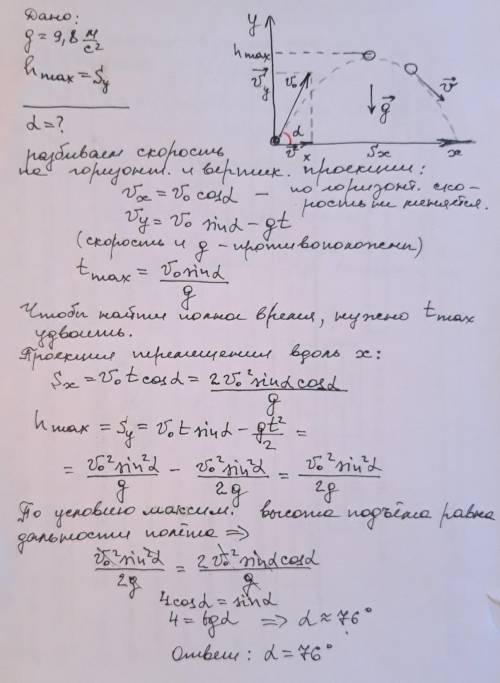 Дано:
g = 9,8 м/с²
hmax = Sy
α = ?
y
hmax
v⃗y
v₀
α
v⃗x
Sx
x
g⃗
v⃗
разбиваем скорость
на горизонт. и вертик. проекции:
vx = v₀ cosα – по горизонт. ско-
рость не меняется.
vy = v₀ sinα – gt
(скорость и g – противоположны)
tmax = v₀sinα / g
Чтобы найти полное время, нужно tmax
удвоить.
Проекция перемещения вдоль x:
Sx = v₀t cosα = 2v₀²sinα cosα / g
hmax = Sy = v₀t sinα – gt²/2 =
= v₀²sin²α / g – v₀²sin²α / 2g = v₀²sin²α / 2g
По условию максим. высота подъёма равна
дальности полёта =>
v₀²sin²α / 2g = 2v₀²sinα cosα / g
4cosα = sinα
4 = tgα => α ≈ 76°
Ответ: α = 76°